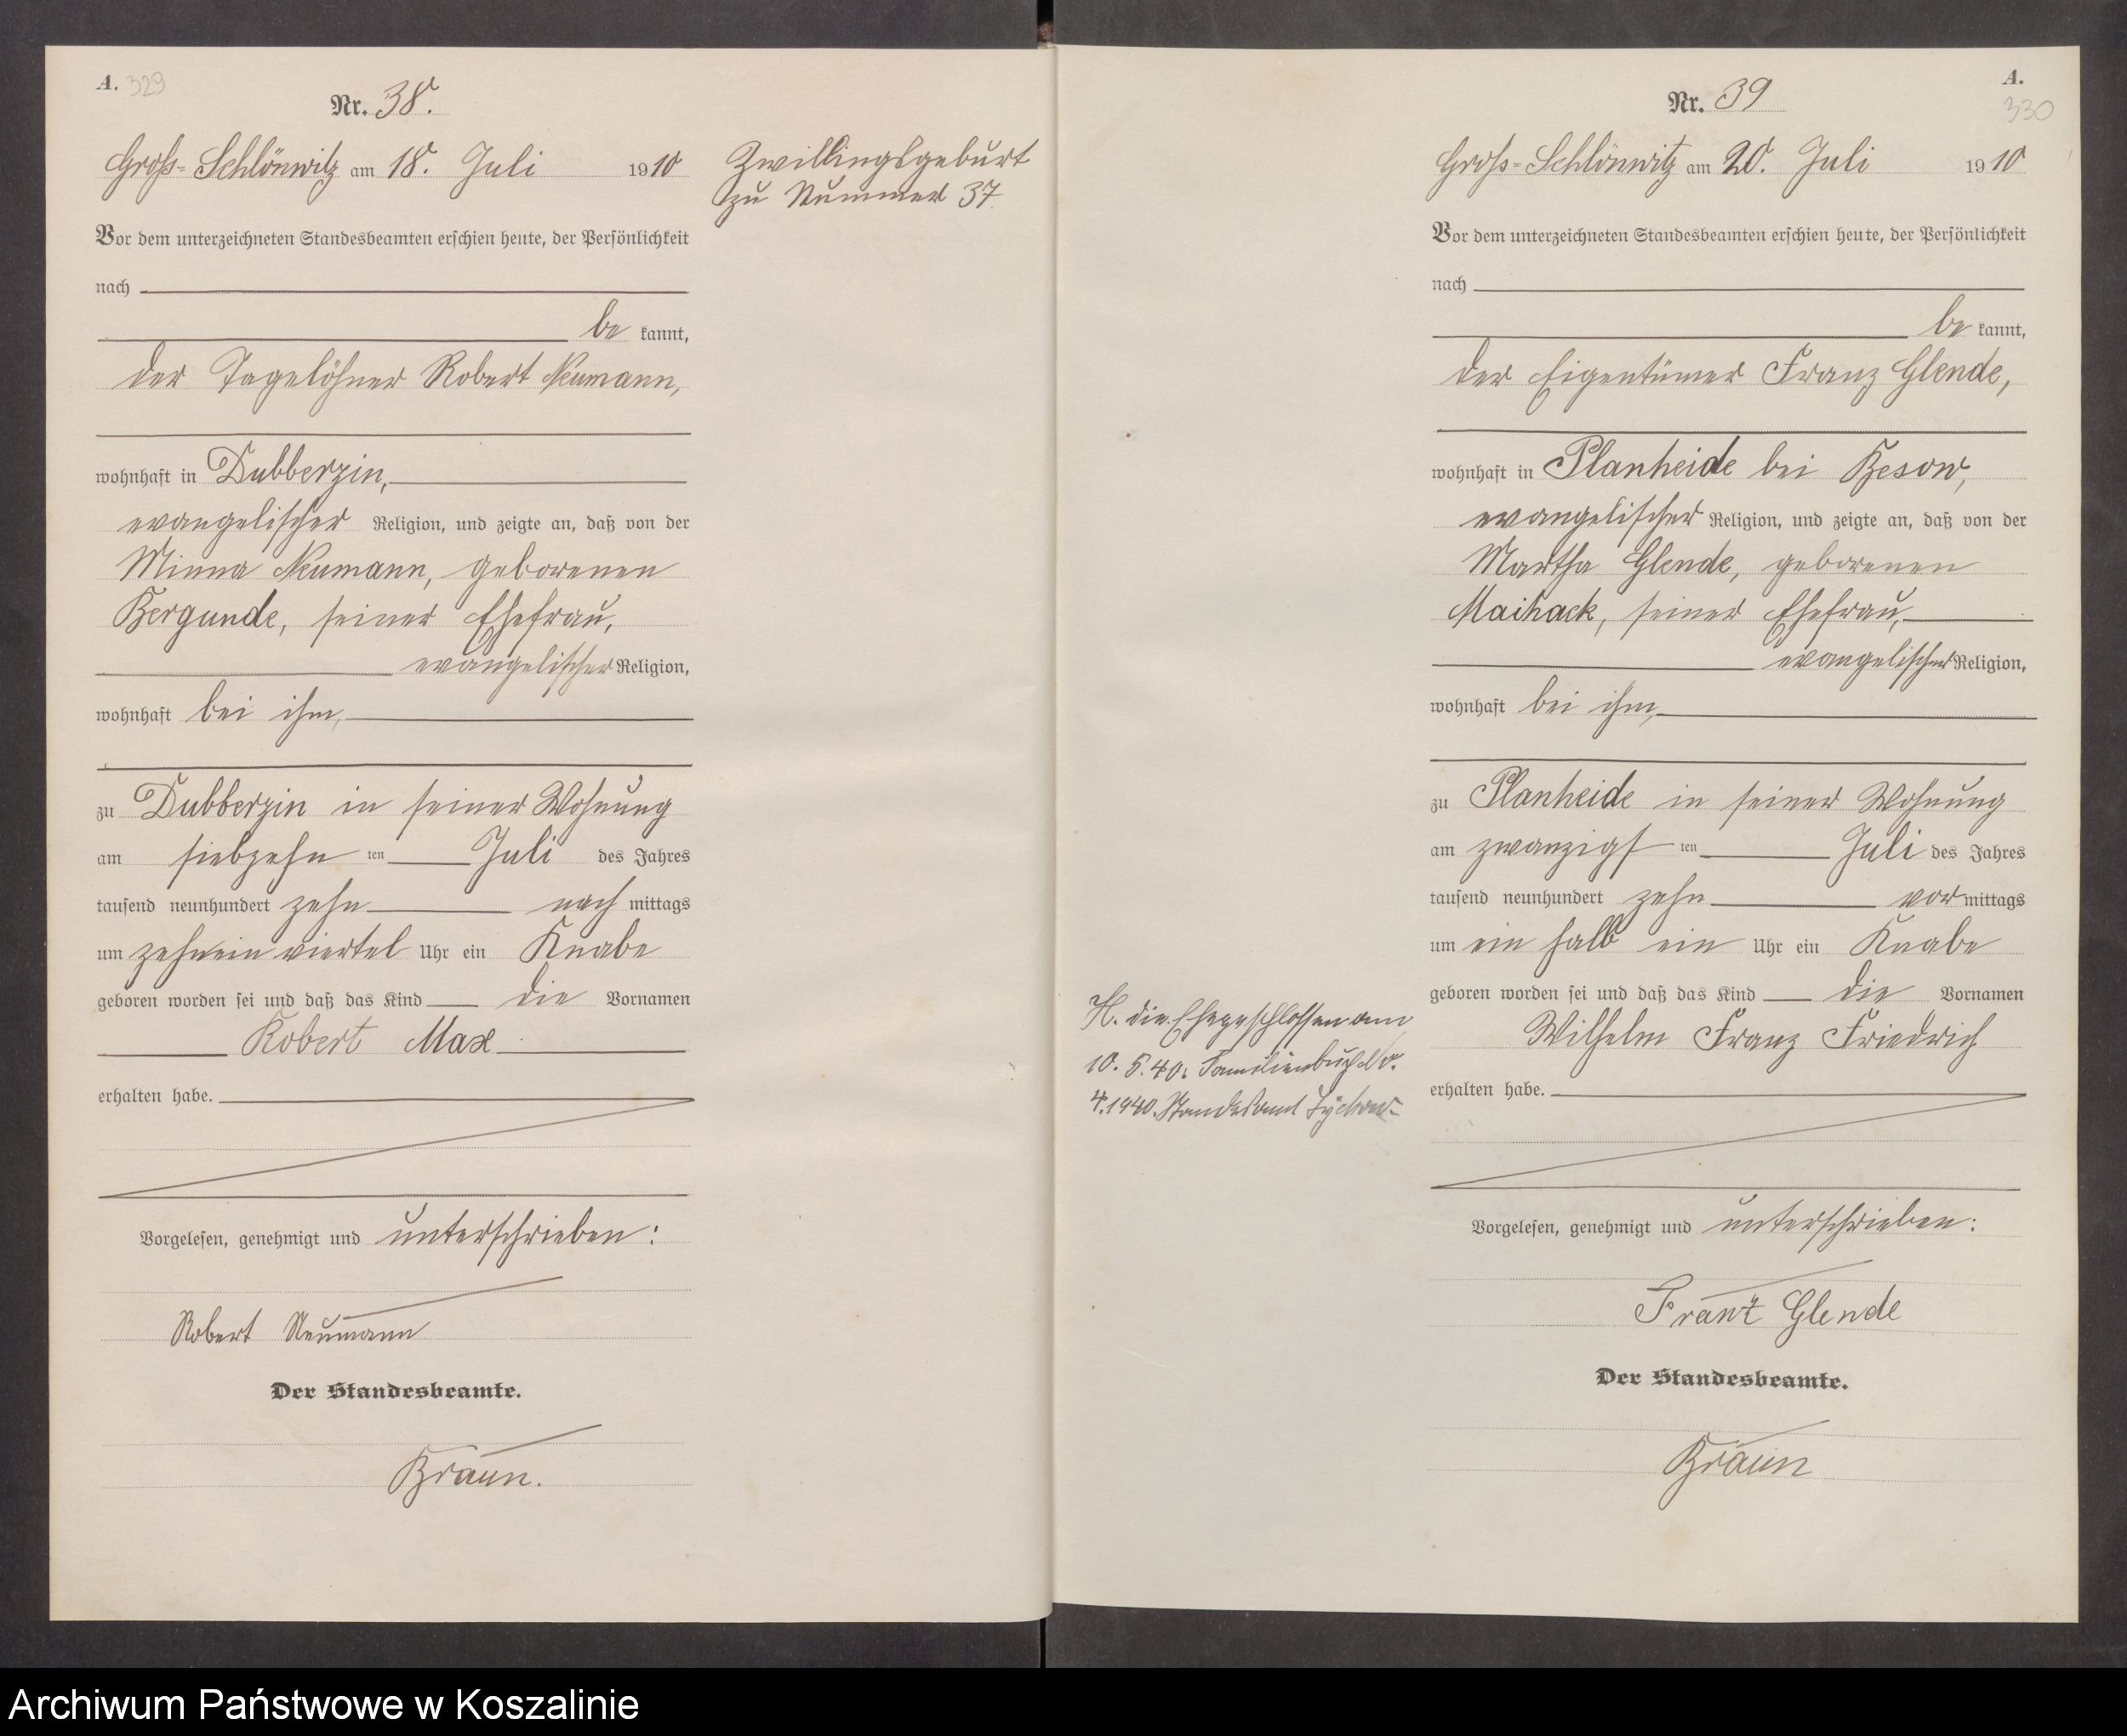 A. 329
Nr. 38.
Groß-Schlönwitz am 18. Juli 1910
Zwillingsgeburt
zu Nummer 37
Vor dem unterzeichneten Standesbeamten erschien heute, der Persönlichkeit
nach
be kannt,
der Tagelöhner Robert Neumann,
wohnhaft in Dubberzin,
evangelischer Religion, und zeigte an, daß von der
Minna Neumann, geborenen
Bergande, seiner Ehefrau,
evangelischer Religion,
wohnhaft bei ihm,
zu Dubberzin in seiner Wohnung
am siebzehn ten Juli des Jahres
tausend neunhundert zehn nach mittags
um zehnein viertel Uhr ein Knabe
geboren worden sei und daß das Kind die Vornamen
Robert Max
erhalten habe.
Vorgelesen, genehmigt und unterschrieben:
Robert Neumann
Der Standesbeamte.
Braun.
A.
330
Nr. 39
Groß-Schlönwitz am 20. Juli 1910
Vor dem unterzeichneten Standesbeamten erschien heute, der Persönlichkeit
nach
be kannt,
der Eigentümer Franz Glende,
wohnhaft in Planheide bei Besow,
evangelischer Religion, und zeigte an, daß von der
Martha Glende, geborenen
Maihack, seiner Ehefrau,
evangelischer Religion,
wohnhaft bei ihm,
zu Planheide in seiner Wohnung
am zwanzigs ten Juli des Jahres
tausend neunhundert zehn vor mittags
um ein halb ein Uhr ein Knabe
geboren worden sei und daß das Kind die Vornamen
Wilhelm Franz Friedrich
erhalten habe.
H. die Ehe geschlossen am
10. 5. 40. Familienbuch Nr.
4.1940. Standesamt
Vorgelesen, genehmigt und unterschrieben:
Franz Glende
Der Standesbeamte.
Braun
Archiwum Państwowe w Koszalinie